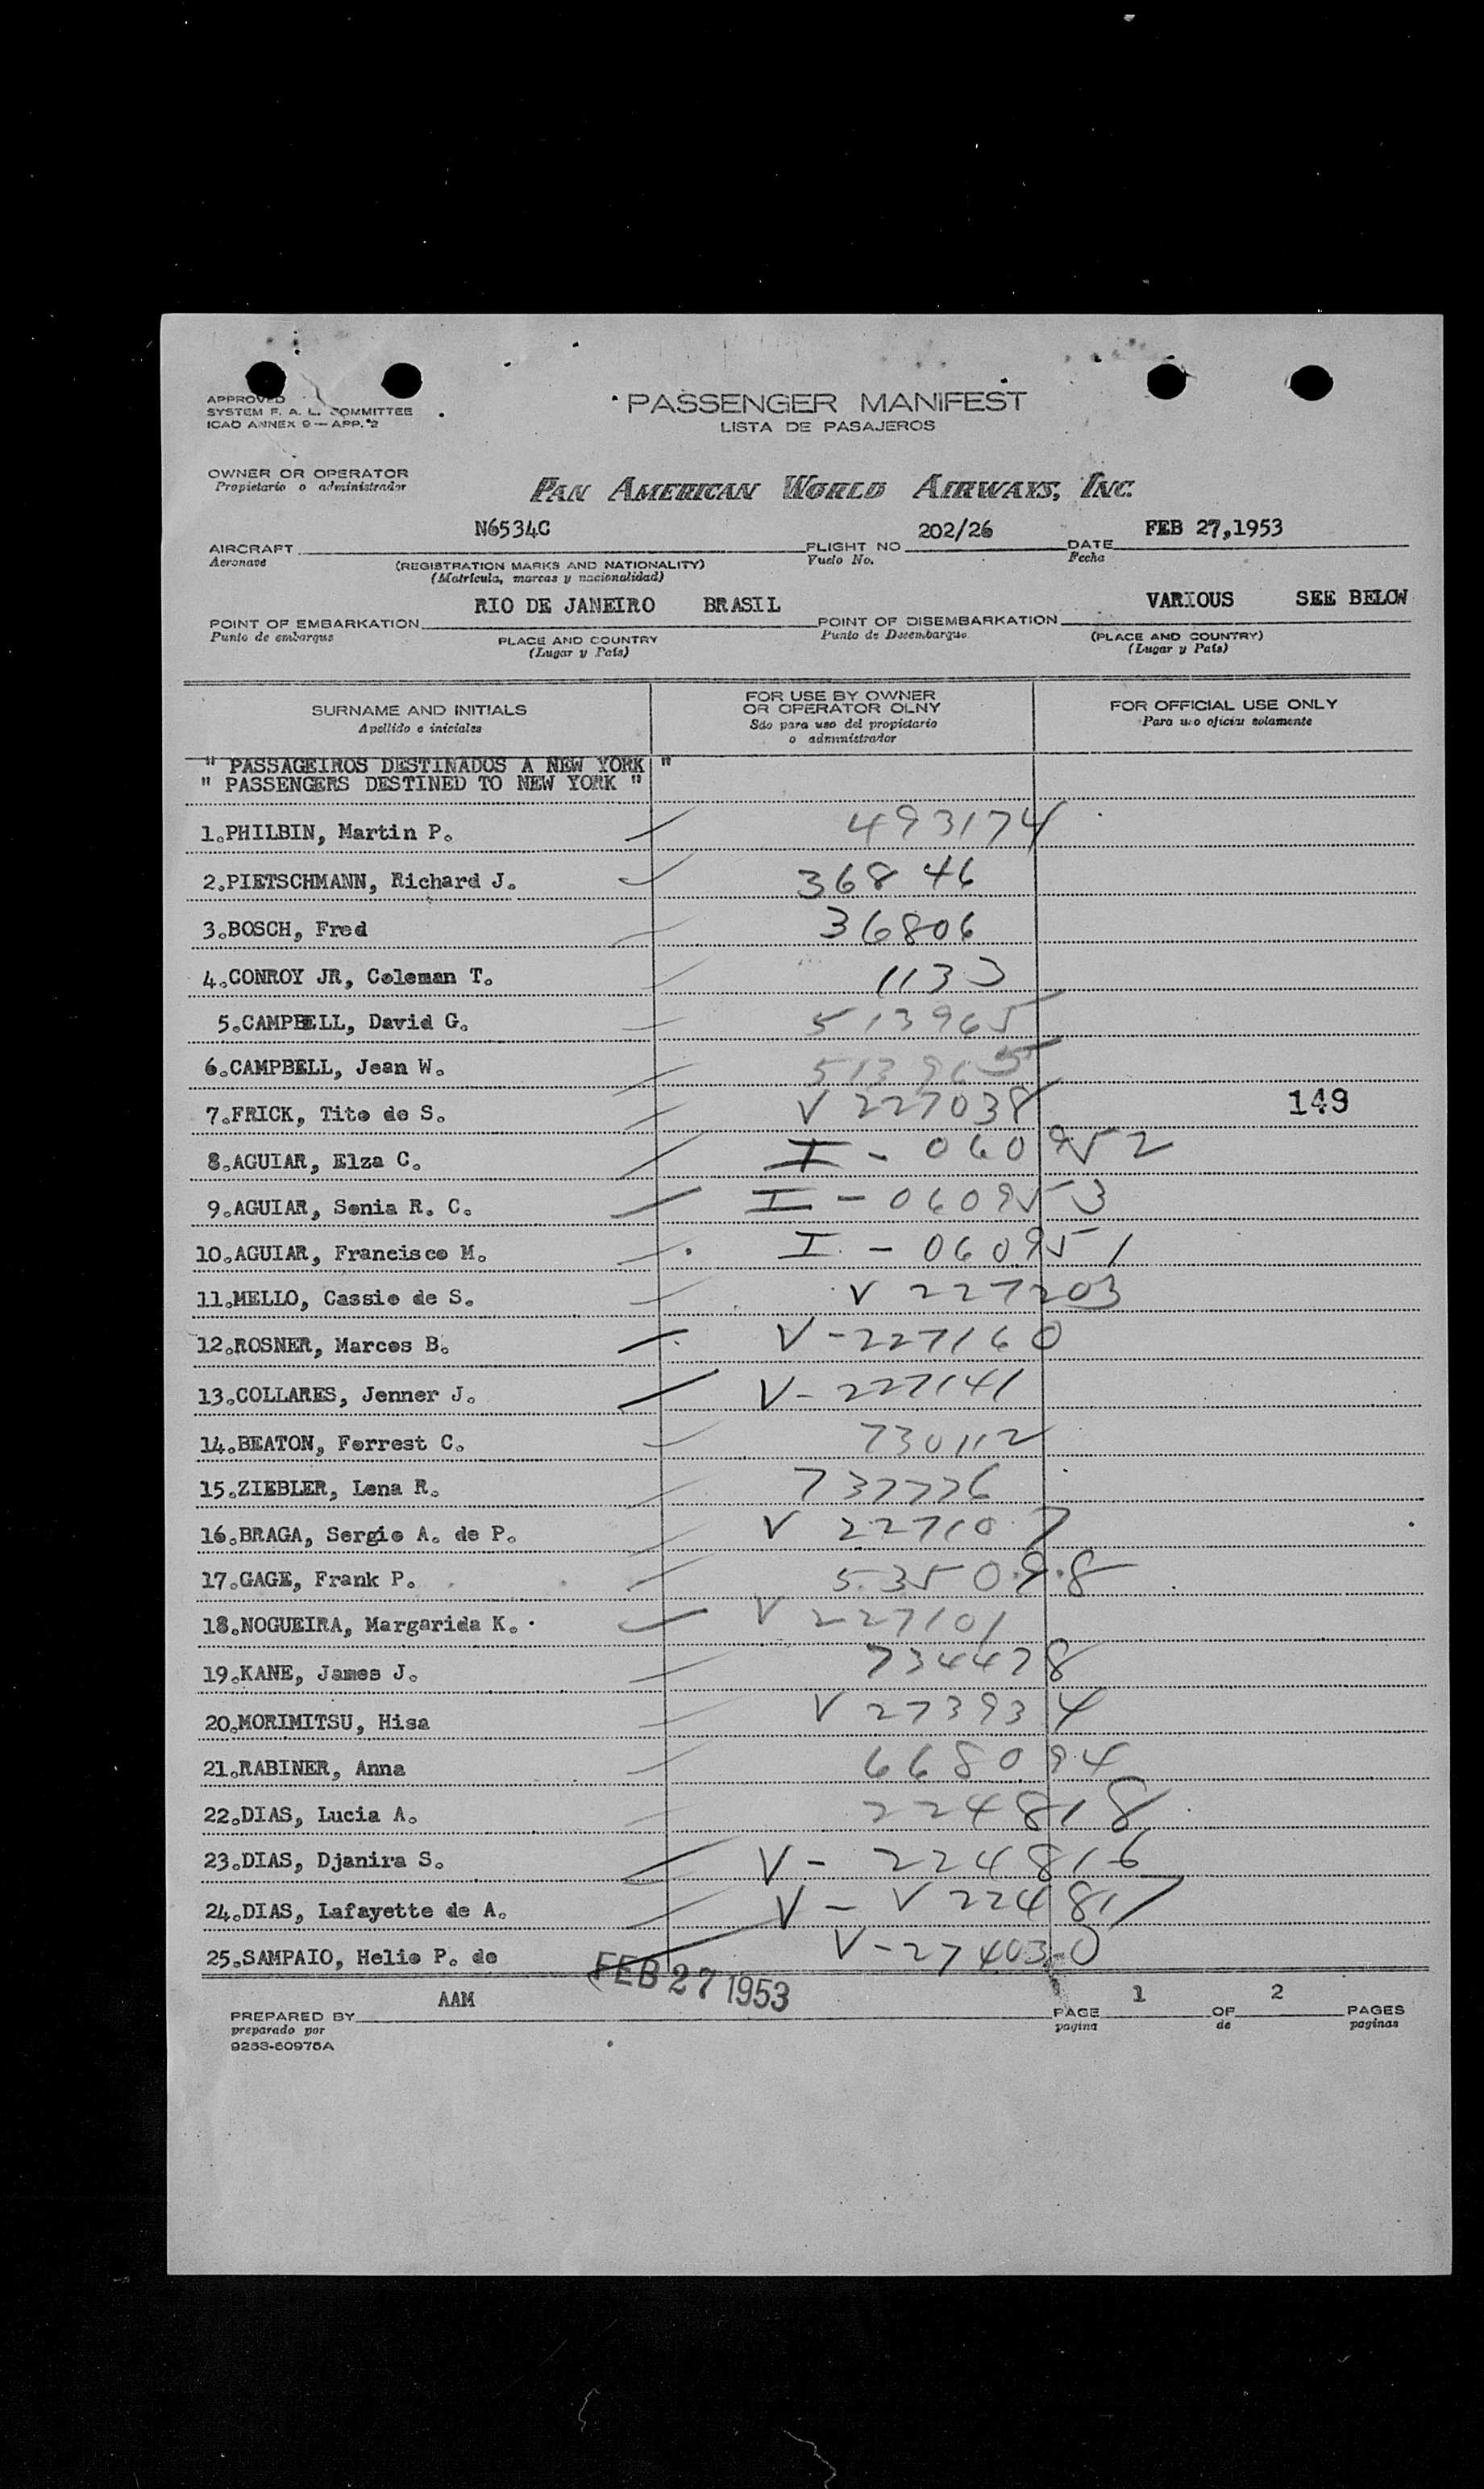 APPROVED
SYSTEM F. A. L. COMMITTEE
ICAO ANNEX 9 — APP. 2
PASSENGER MANIFEST
LISTA DE PASAJEROS
OWNER OR OPERATOR
Propietario o administrador
PAN AMERICAN WORLD AIRWAYS, INC.
AIRCRAFT N6534C FLIGHT NO 202/26 DATE FEB 27,1953
Aeronave (REGISTRATION MARKS AND NATIONALITY) Vuelo No. Fecha
(Matrícula, marcas y nacionalidad)
POINT OF EMBARKATION RIO DE JANEIRO BRASIL POINT OF DISEMBARKATION VARIOUS SEE BELOW
Punto de embarque PLACE AND COUNTRY Punto de Desembarque (PLACE AND COUNTRY)
(Lugar y País) (Lugar y País)
SURNAME AND INITIALS FOR USE BY OWNER OR OPERATOR OLNY FOR OFFICIAL USE ONLY
Apellido e iniciales Sólo para uso del propietario o administrador Para uso oficial solamente
" PASSAGEIROS DESTINADOS A NEW YORK "
" PASSENGERS DESTINED TO NEW YORK "
1.PHILBIN, Martin P. 493174
2.PIETSCHMANN, Richard J. 36846
3.BOSCH, Fred 36806
4.CONROY JR, Coleman T. 1133
5.CAMPBELL, David G. 513965
6.CAMPBELL, Jean W. 513965
7.FRICK, Tito de S. V 227038 149
8.AGUIAR, Elza C. I - 060952
9.AGUIAR, Sonia R. C. I - 060953
10.AGUIAR, Francisco M. I - 060951
11.MELLO, Cassio de S. V 227203
12.ROSNER, Marcos B. V - 227160
13.COLLARES, Jenner J. V - 227141
14.BEATON, Forrest C. 730112
15.ZIEBLER, Lena R. 737776
16.BRAGA, Sergio A. de P. V 227107
17.GAGE, Frank P. 535098
18.NOGUEIRA, Margarida K. V 227101
19.KANE, James J. 734478
20.MORIMITSU, Hisa V 273934
21.RABINER, Anna 668094
22.DIAS, Lucia A. 224818
23.DIAS, Djanira S. V - 224816
24.DIAS, Lafayette de A. V - V 224817
25.SAMPAIO, Helio P. de V - 274030
FEB 27 1953
PREPARED BY AAM PAGE 1 OF 2 PAGES
preparado por pagina de paginas
9253-60975A